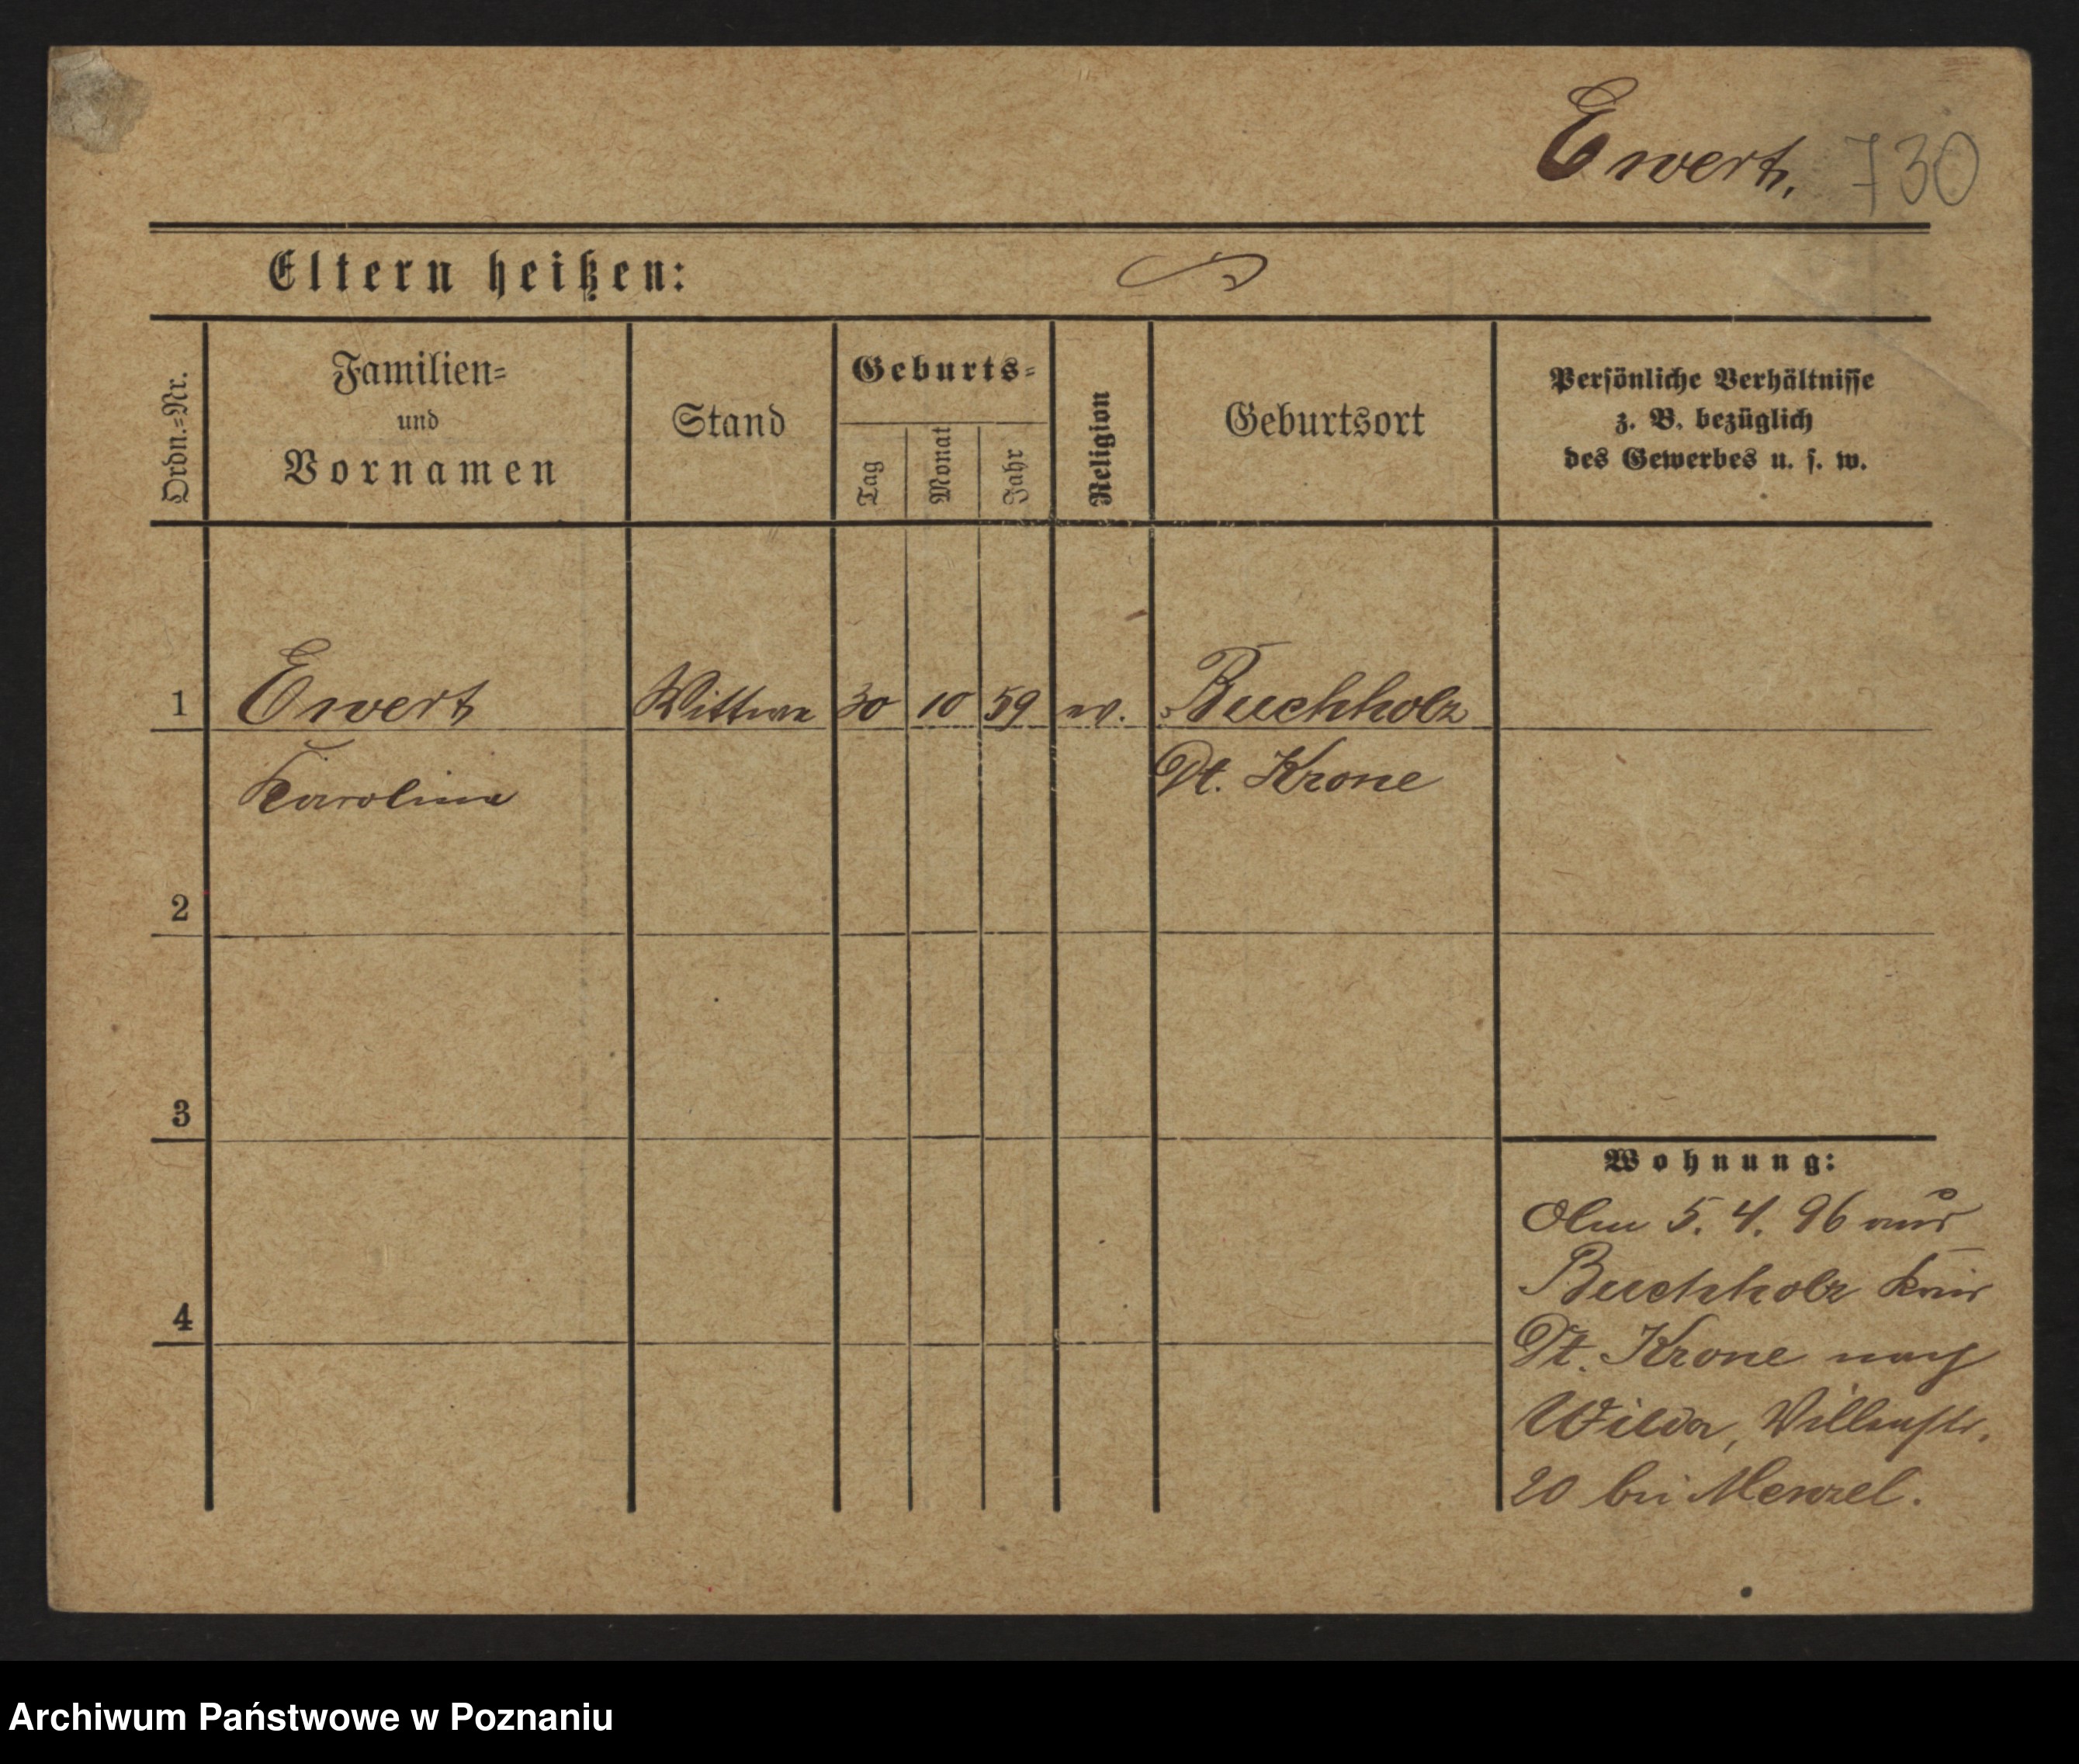 Ewert, 730
Eltern heißen:
Ordn.=Nr.
Familien=
und
Vornamen
Stand
Geburts=
Tag
Monat
Jahr
Religion
Geburtsort
Persönliche Verhältnisse
z. B. bezüglich
des Gewerbes u. s. w.
1 Ewert Wittwe 30 10 59 ev. Buchholz
Karoline Dt. Krone
2
3
4
Wohnung:
Am 5. 4. 96 aus
Buchholz Kreis
Dt. Krone nach
Wilda, Villenstr.
20 bei Menzel.
Archiwum Państwowe w Poznaniu